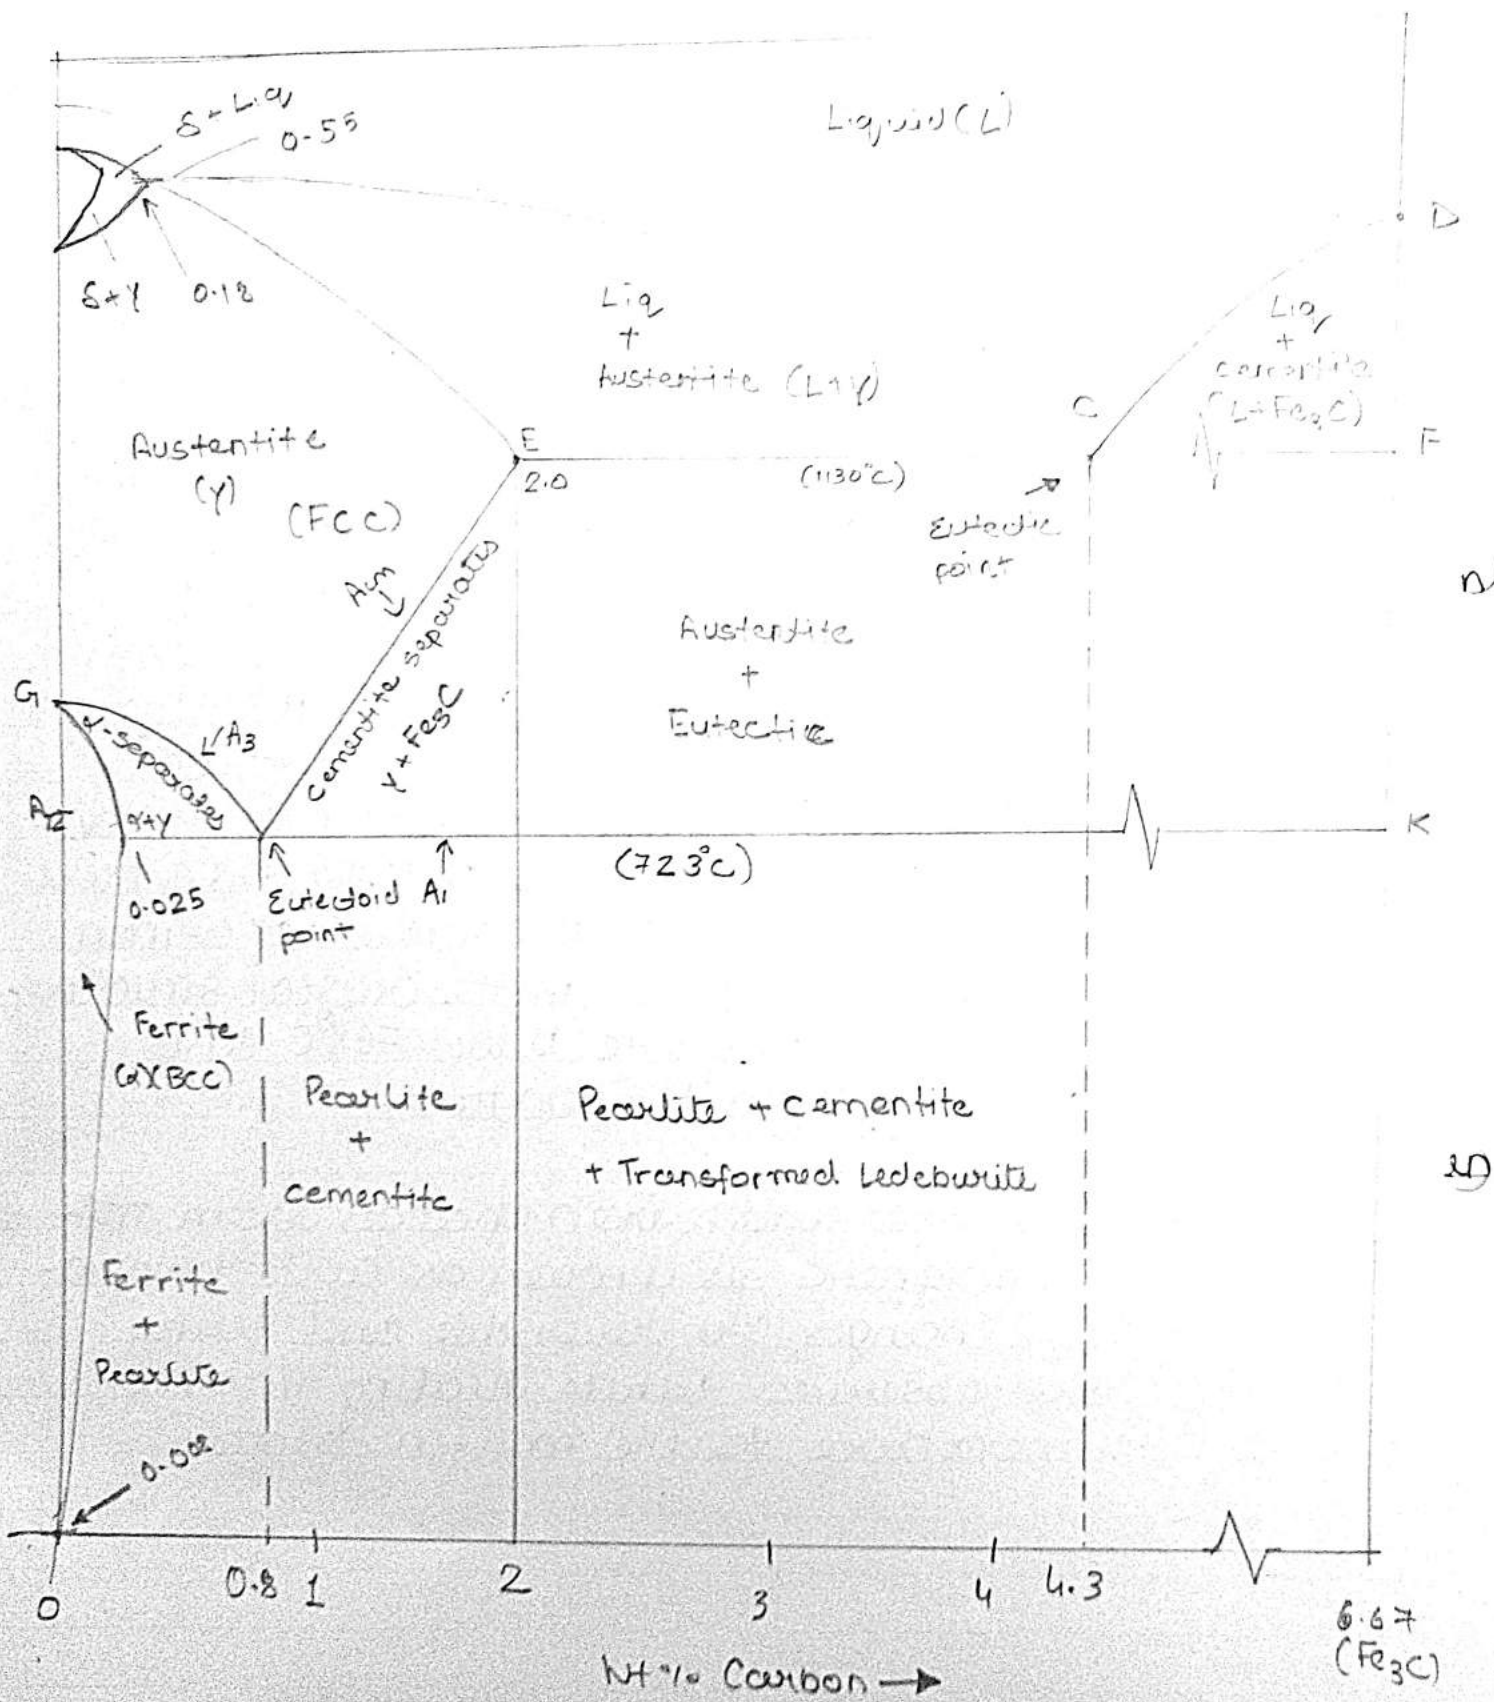 δ + Liq
0.55
Liquid (L)
D
δ+γ
0.18
Liq
+
Austentite (L+γ)
Liq
+
cementite
(L+Fe3C)
C
F
Austentite
(γ)
(FCC)
E
2.0
(1130°C)
Eutectic
point
Acm
Cementite separates
γ + Fe3C
Austentite
+
Eutectic
G
A3
α-separates
α+γ
K
(723°C)
0.025
Eutectoid
point
A1
Ferrite
(α)(BCC)
Pearlite
+
cementite
Pearlite + cementite
+ Transformed Ledeburite
Ferrite
+
Pearlite
0.008
0
0.8
1
2
3
4
4.3
6.67
(Fe3C)
Wt % Carbon →